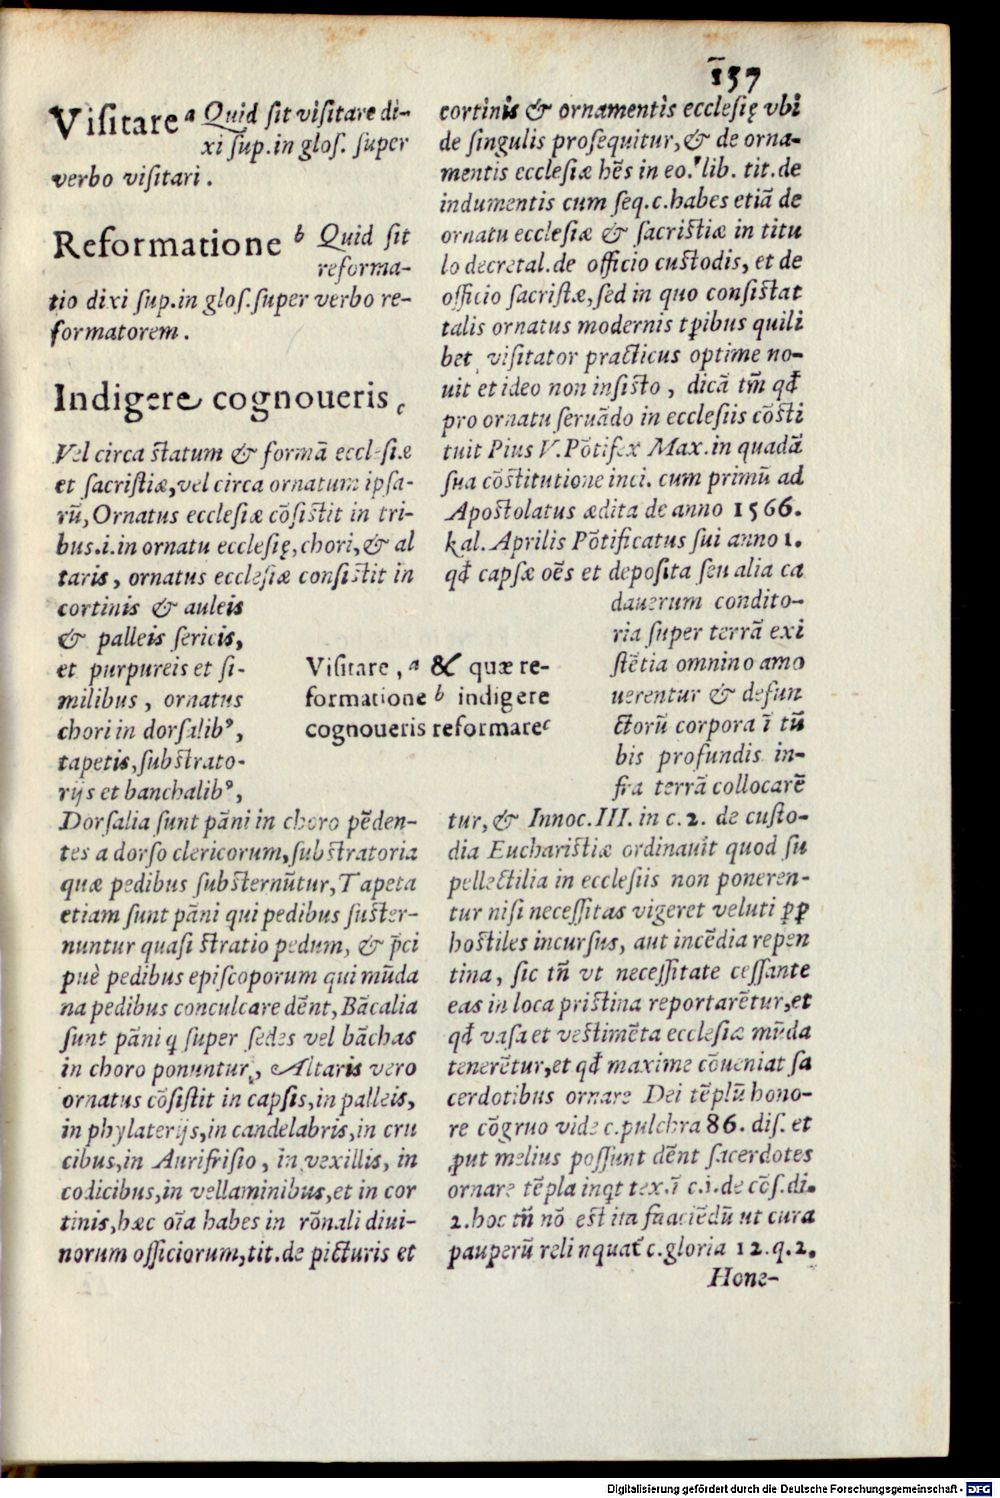 157
Visitare a Quid sit visitare di-
xi sup. in glos. super
verbo visitari.
Reformatione b Quid sit
reforma-
tio dixi sup. in glos. super verbo re-
formatorem.
Indigere cognoueris c
Vel circa statum & formā ecclesiæ
et sacristiæ, vel circa ornatum ipsa-
rū, Ornatus ecclesiæ cōsistit in tri-
bus. i. in ornatu ecclesię, chori, & al
taris, ornatus ecclesiæ consistit in
cortinis & auleis
& palleis sericis,
et purpureis et si-
milibus, ornatus
chori in dorsalibꝰ,
tapetis, substrato-
rijs et banchalibꝰ,
Dorsalia sunt pāni in choro pēden-
tes a dorso clericorum, substratoria
quæ pedibus substernūtur, Tapeta
etiam sunt pāni qui pedibus suster-
nuntur quasi stratio pedum, & p̄ci
puè pedibus episcoporum qui mūda
na pedibus conculcare dēnt, Bācalia
sunt pāni q super sedes vel bāchas
in choro ponuntur, Altaris vero
ornatus cōsistit in capsis, in palleis,
in phylaterijs, in candelabris, in cru
cibus, in Aurifrisio, in vexillis, in
codicibus, in vellaminibus, et in cor
tinis, hæc oīa habes in rōnali diui-
norum officiorum, tit. de picturis et
Visitare, a & quæ re-
formatione b indigere
cognoueris reformare c
cortinis & ornamentis ecclesię vbi
de singulis prosequitur, & de orna-
mentis ecclesiæ hēs in eo. lib. tit. de
indumentis cum seq. c. habes etiā de
ornatu ecclesiæ & sacristiæ in titu
lo decretal. de officio custodis, et de
officio sacristæ, sed in quo consistat
talis ornatus modernis tp̄ibus quili
bet visitator practicus optime no-
uit et ideo non insisto, dicā tm̄ qđ
pro ornatu seruādo in ecclesiis cōsti
tuit Pius V. Pōtifex Max. in quadā
sua cōstitutione inci. cum primū ad
Apostolatus ædita de anno 1566.
kal. Aprilis Pōtificatus sui anno 1.
qđ capsæ oēs et deposita seu alia ca
dauerum condito-
ria super terrā exi
stētia omnino amo
uerentur & defun
ctorū corpora ī tū
bis profundis in-
fra terrā collocarē
tur, & Innoc. III. in c. 2. de custo-
dia Eucharistiæ ordinauit quod su
pellectilia in ecclesiis non poneren-
tur nisi necessitas vigeret veluti ꝓp
hostiles incursus, aut incēdia repen
tina, sic tn̄ vt necessitate cessante
eas in loca pristina reportarētur, et
qđ vasa et vestimēta ecclesiæ mūda
tenerētur, et qđ maxime cōueniat sa
cerdotibus ornare Dei tēplū hono-
re cōgruo vide c. pulchra 86. dis. et
ꝓut melius possunt dēnt sacerdotes
ornare tēpla inqt tex. ī c. i. de cōs. di.
2. hoc tn̄ nō est ita faaciēdū ut cura
pauperū relinquat̄ c. gloria 12. q. 2.
Hone-
Digitalisierung gefördert durch die Deutsche Forschungsgemeinschaft - DFG